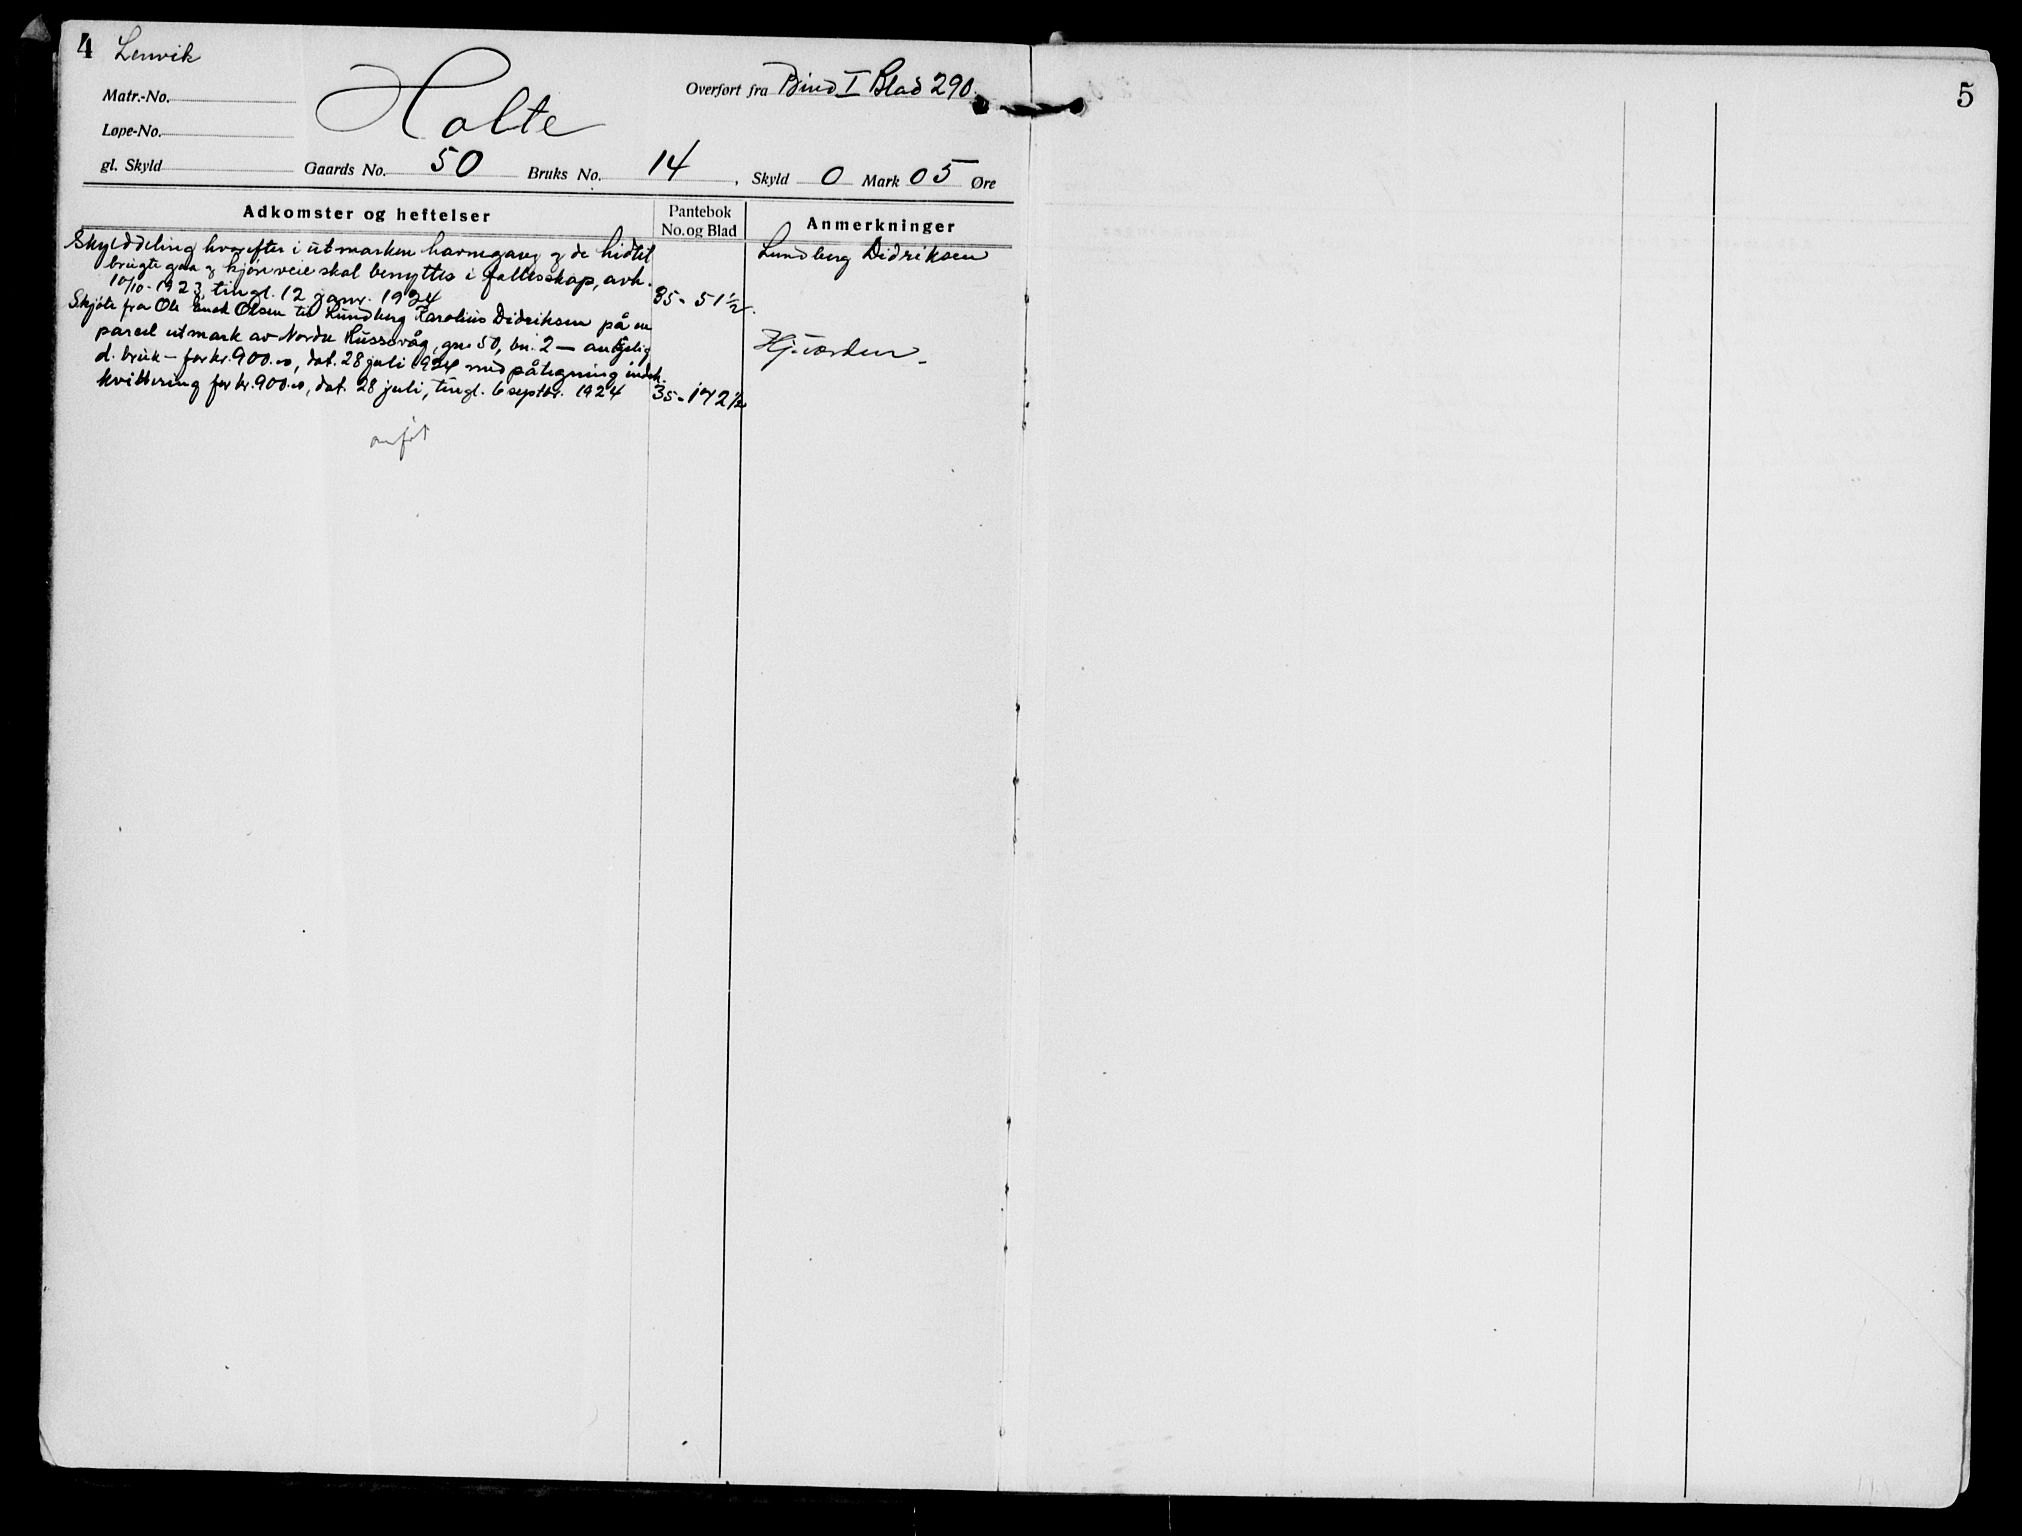 4 Lenvik
Matr.-No.
Overført fra Bind I Blad 290.
Holte
Løpe-No.
gl. Skyld Gaards No. 50 Bruks No. 14, Skyld 0 Mark 05 Øre
Adkomster og heftelser
Pantebok
No. og Blad
Anmerkninger
Skylddeling hvorefter i utmarken havnegang og de hidtil
brugte gaa og kjøreveie skal benyttes i fællesskap, avh.
10/10-1923, tingl. 12 januar. 1924 35-51½.
Skjøte fra Ole Olsen til Lundberg Karolius Didriksen på en
parcel utmark av Nordre Husevåg, gn. 50, bn. 2 —
d. bruk – for kr. 900.00, dat. 28 juli 1924 med påtegning indeh.
kvittering for kr. 900.00, dat. 28 juli, tingl. 6 septbr. 1924 35-172½
Lundberg Didriksen
5